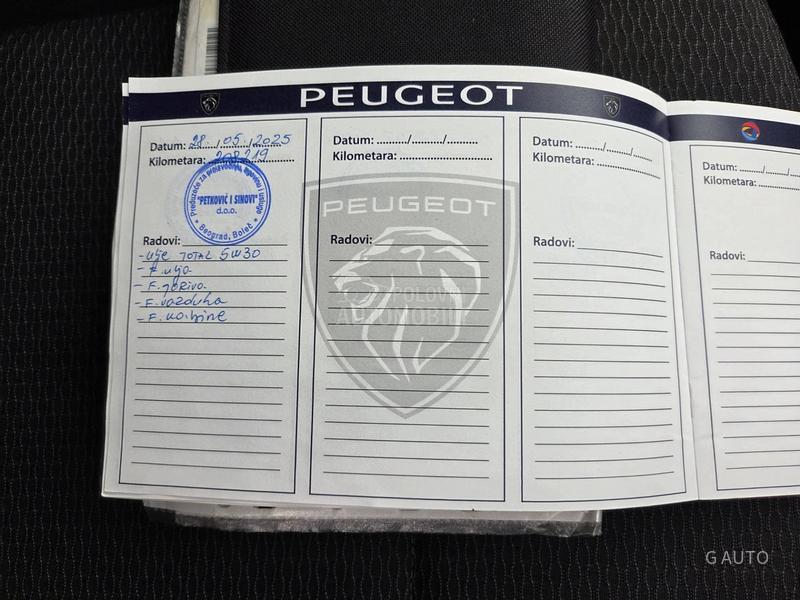 PEUGEOT
Datum: 28 / 05 / 2025
Kilometara: 208219
Preduzeće za proizvodnju, trgovinu i usluge
"PETKOVIĆ I SINOVI"
d.o.o.
Beograd, Boleč
Radovi:
- ulje TOTAL 5W30
- F. ulja
- F. goriva
- F. vazduha
- F. kabine
Datum: ......../......../.........
Kilometara: ............................
Radovi:
PEUGEOT
POLOVNI
AUTOMOBILI
Datum: ......../......../.........
Kilometara: ............................
Radovi:
Datum: ......../......../.........
Kilometara: ............................
Radovi:
G AUTO